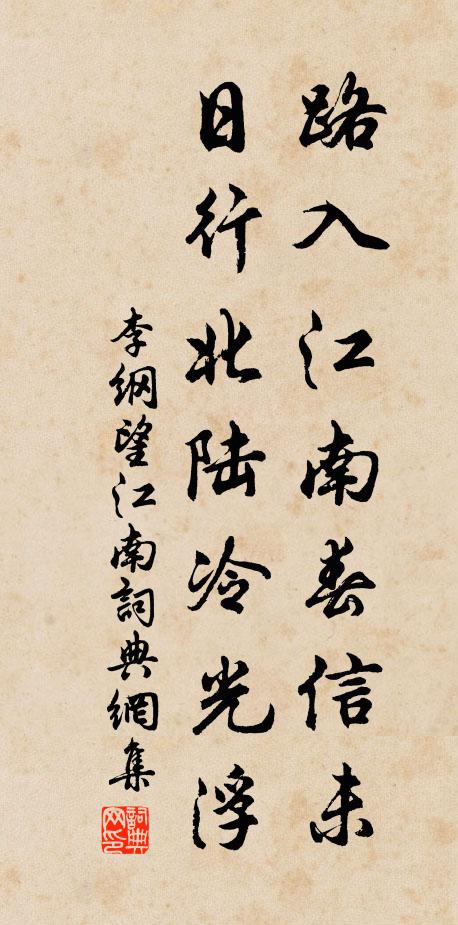 路入江南春信未
日行北陆冷光浮
李纲望江南詞典網集
詞典网印